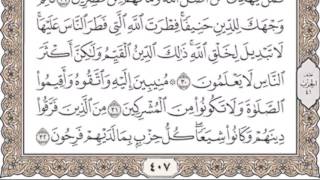 وَجْهَكَ لِلدِّينِ حَنِيفًا ۚ فِطْرَتَ ٱللَّهِ ٱلَّتِى فَطَرَ ٱلنَّاسَ عَلَيْهَا ۚ
لَا تَبْدِيلَ لِخَلْقِ ٱللَّهِ ۚ ذَٰلِكَ ٱلدِّينُ ٱلْقَيِّمُ وَلَٰكِنَّ أَكْثَرَ
ٱلنَّاسِ لَا يَعْلَمُونَ ٣٠ ۞ مُنِيبِينَ إِلَيْهِ وَٱتَّقُوهُ وَأَقِيمُوا۟
ٱلصَّلَوٰةَ وَلَا تَكُونُوا۟ مِنَ ٱلْمُشْرِكِينَ ٣١ مِنَ ٱلَّذِينَ فَرَّقُوا۟
دِينَهُمْ وَكَانُوا۟ شِيَعًا ۖ كُلُّ حِزْبٍۭ بِمَا لَدَيْهِمْ فَرِحُونَ ٣٢
٤٠٧